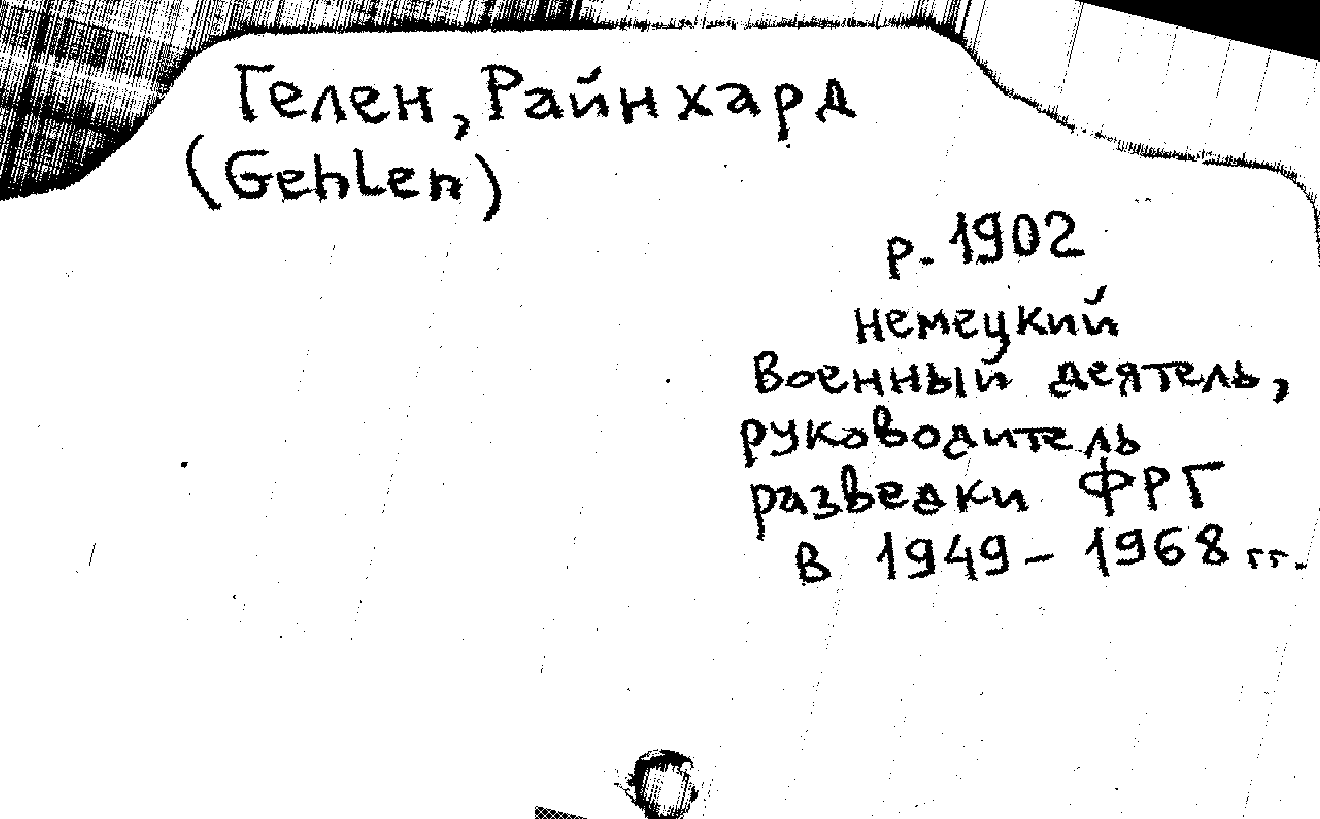 Гелен, Райнхард
(Gehlen)
р. 1902
немецкий
военный деятель,
руководитель
разведки ФРГ
в 1949 – 1968 гг.